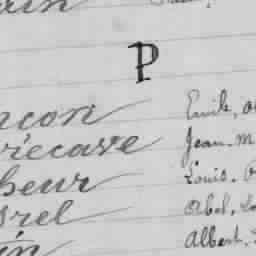 ain
P
con Emile,
récave Jean. M
heur Louis.
rel Abel.
in Albert.